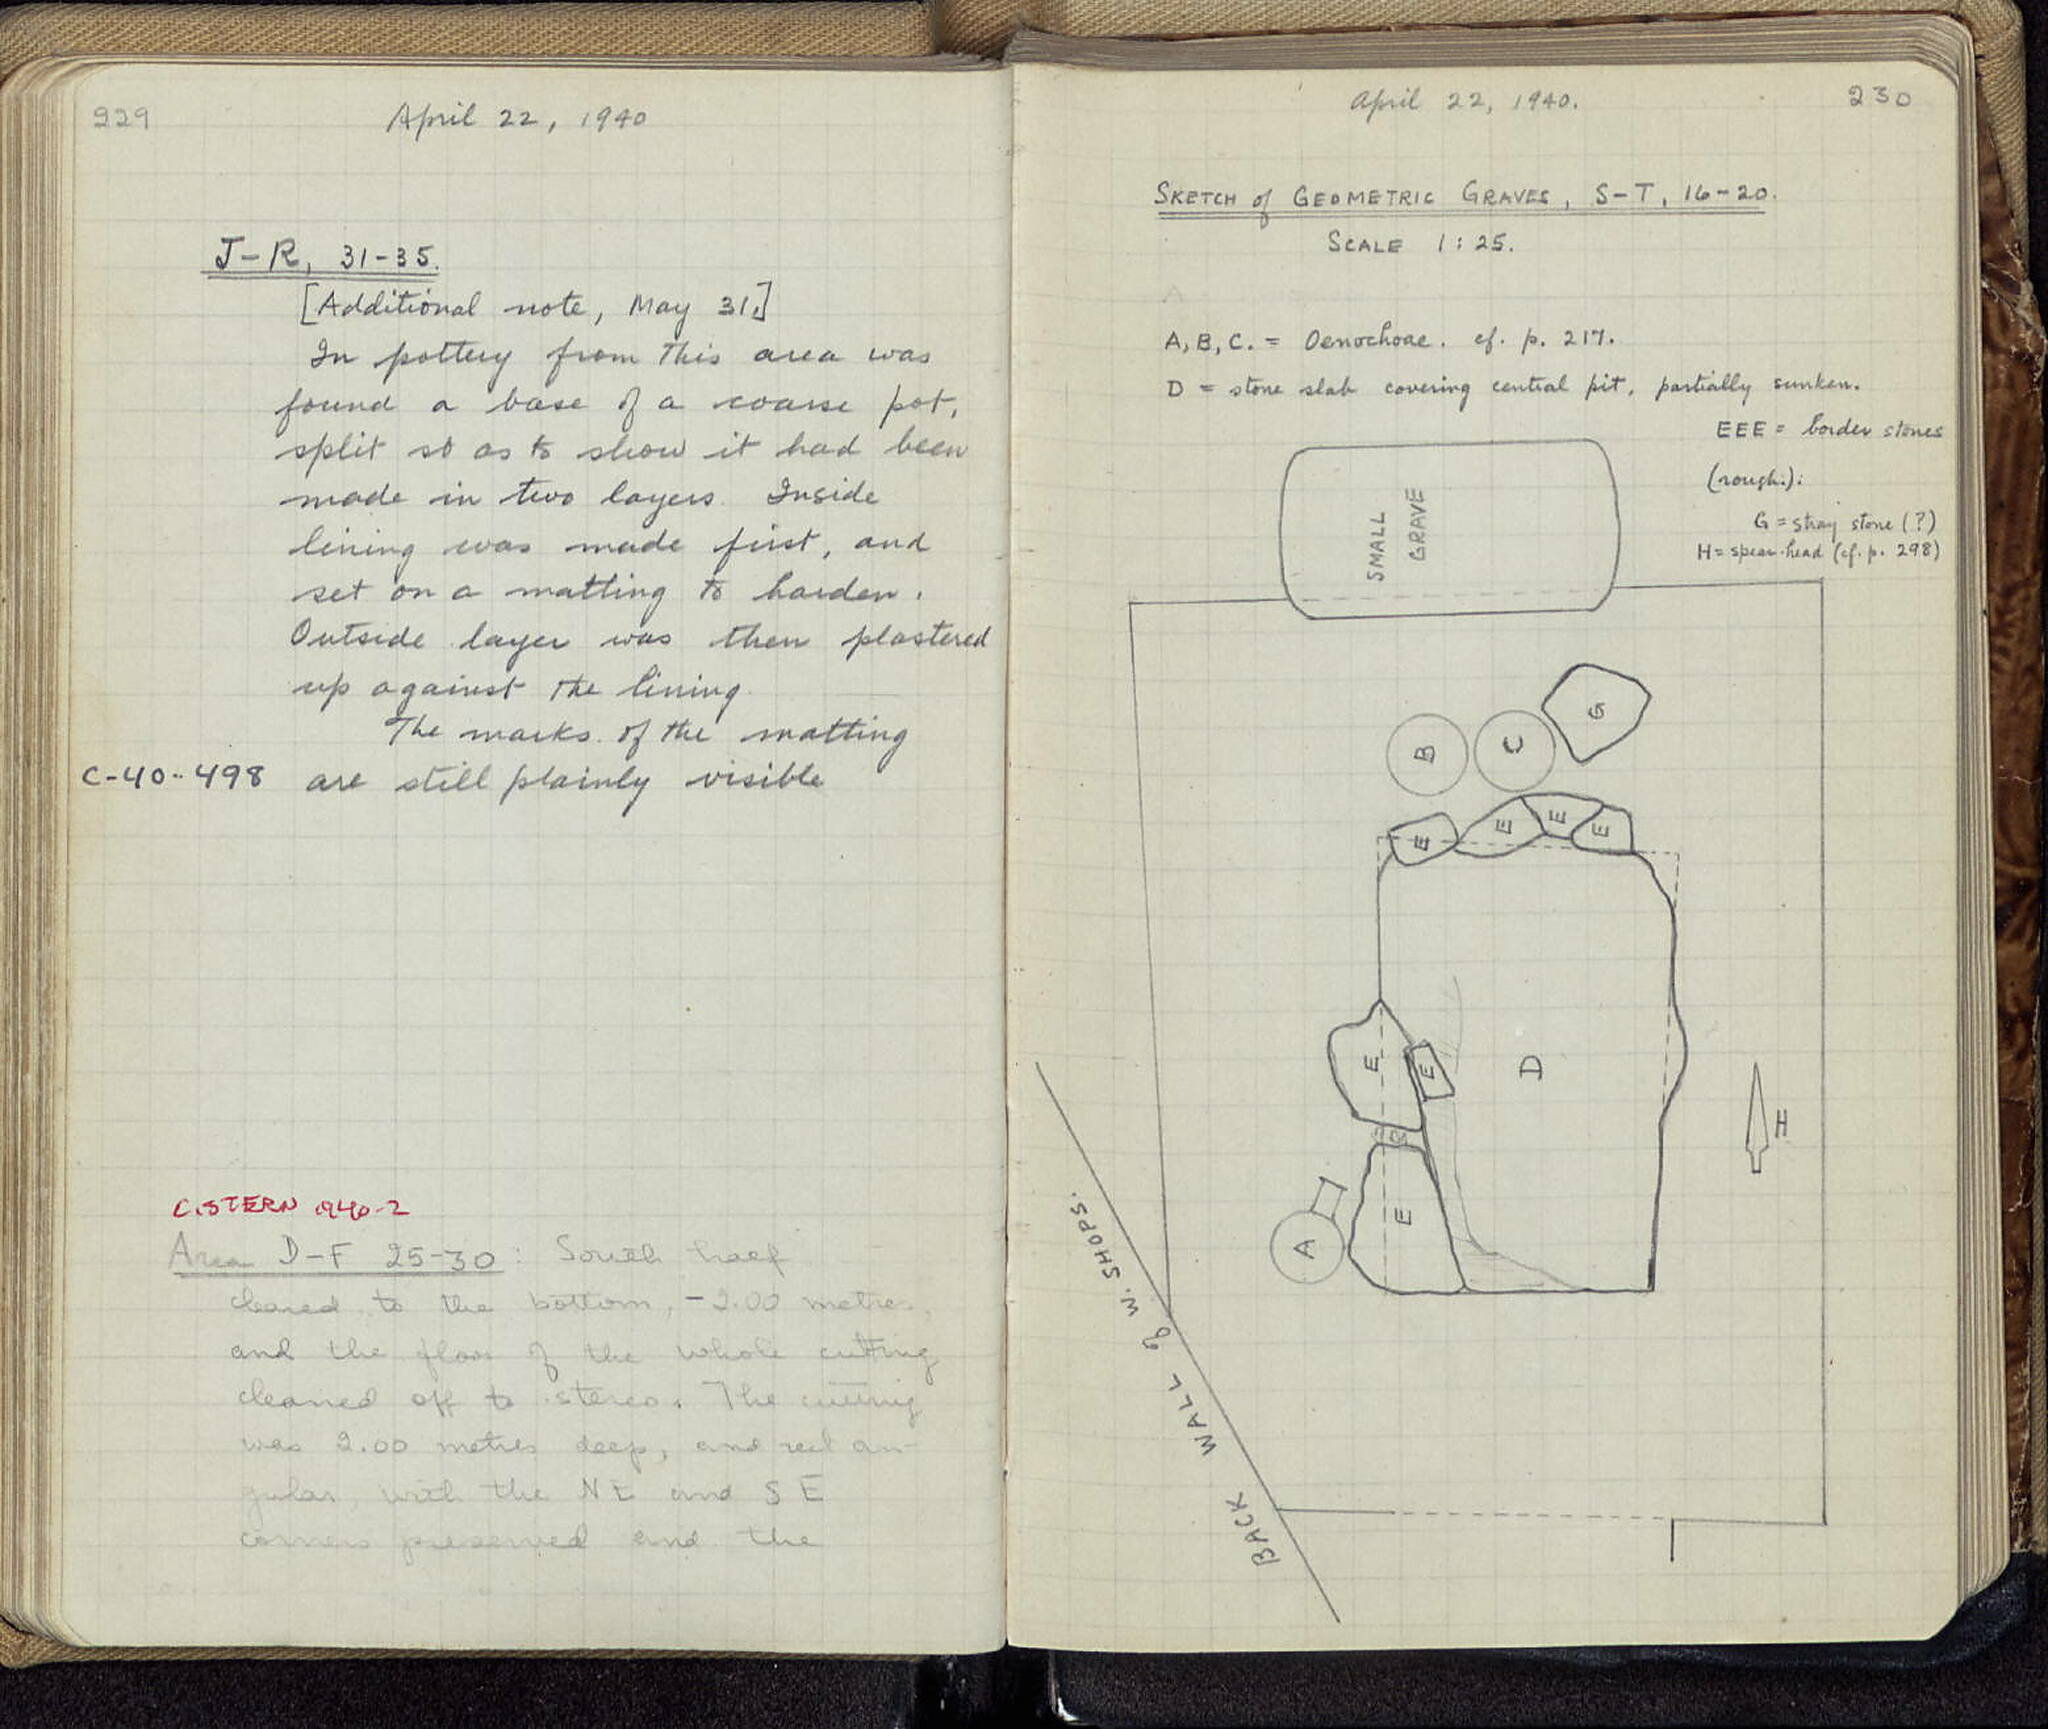 229
April 22, 1940
J-R, 31-35.
[Additional note, May 31.]
In pottery from this area was
found a base of a coarse pot,
split so as to show it had been
made in two layers. Inside
lining was made first, and
set on a matting to harden.
Outside layer was then plastered
up against the lining.
The marks of the matting
C-40-498 are still plainly visible
CISTERN 1940-2
Area D-F 25-30: South half
cleared to the bottom, -2.00 metres,
and the floor of the whole cutting
cleaned off to stereo. The cutting
was 2.00 metres deep, and rect an-
gular, with the NE and SE
corners preserved and the
April 22, 1940.
230
SKETCH of GEOMETRIC GRAVES, S-T, 16-20.
SCALE 1:25.
A, B, C. = Oenochoae. cf. p. 217.
D = stone slab covering central pit, partially sunken.
EEE = border stones
(rough.).
G = stray stone (?)
H = spear-head (cf. p. 298)
SMALL
GRAVE
B
C
G
E
E
E
E
E
E
D
H
A
E
BACK WALL of W. SHOPS.